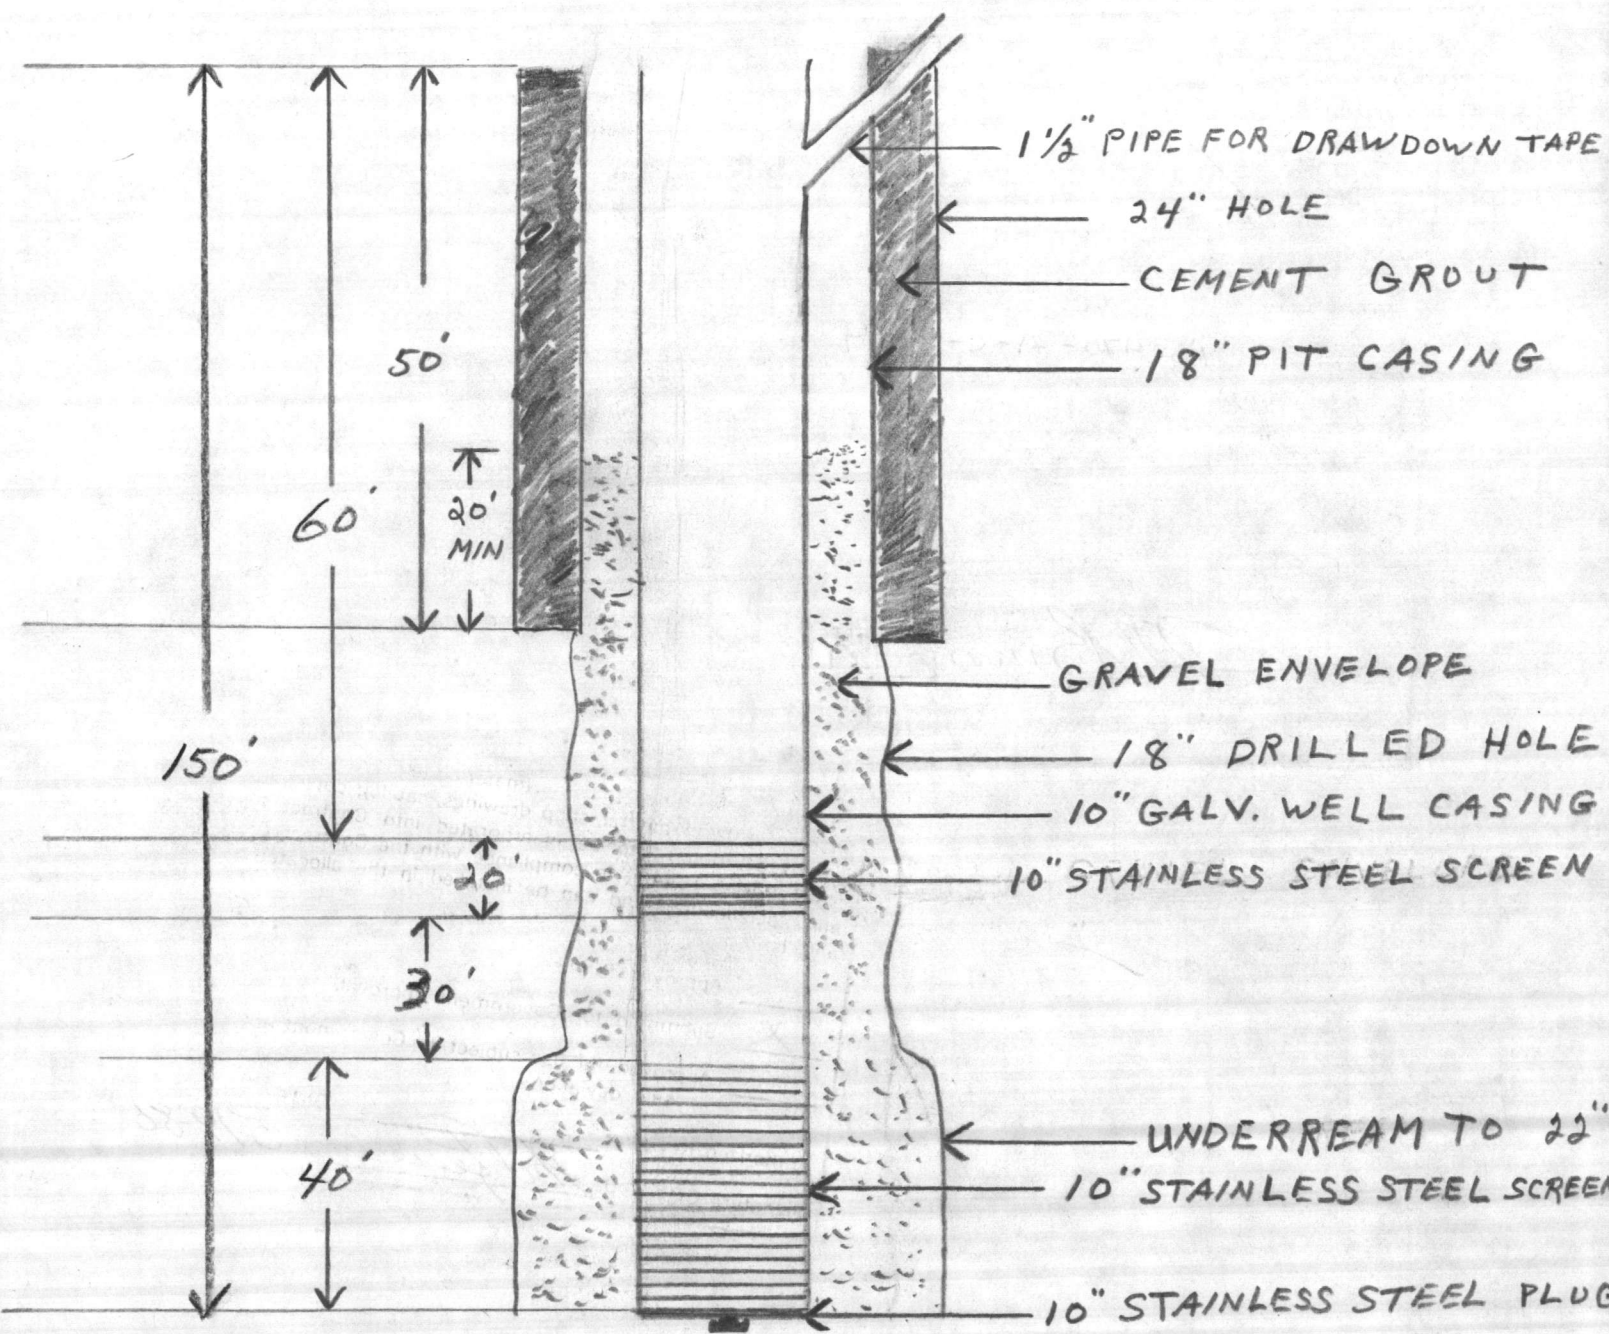 1 1/2" PIPE FOR DRAWDOWN TAPE
24" HOLE
CEMENT GROUT
18" PIT CASING
50'
20'
MIN
60'
GRAVEL ENVELOPE
18" DRILLED HOLE
150'
10" GALV. WELL CASING
20'
10" STAINLESS STEEL SCREEN
30'
UNDERREAM TO 22"
40'
10" STAINLESS STEEL SCREEN
10" STAINLESS STEEL PLUG